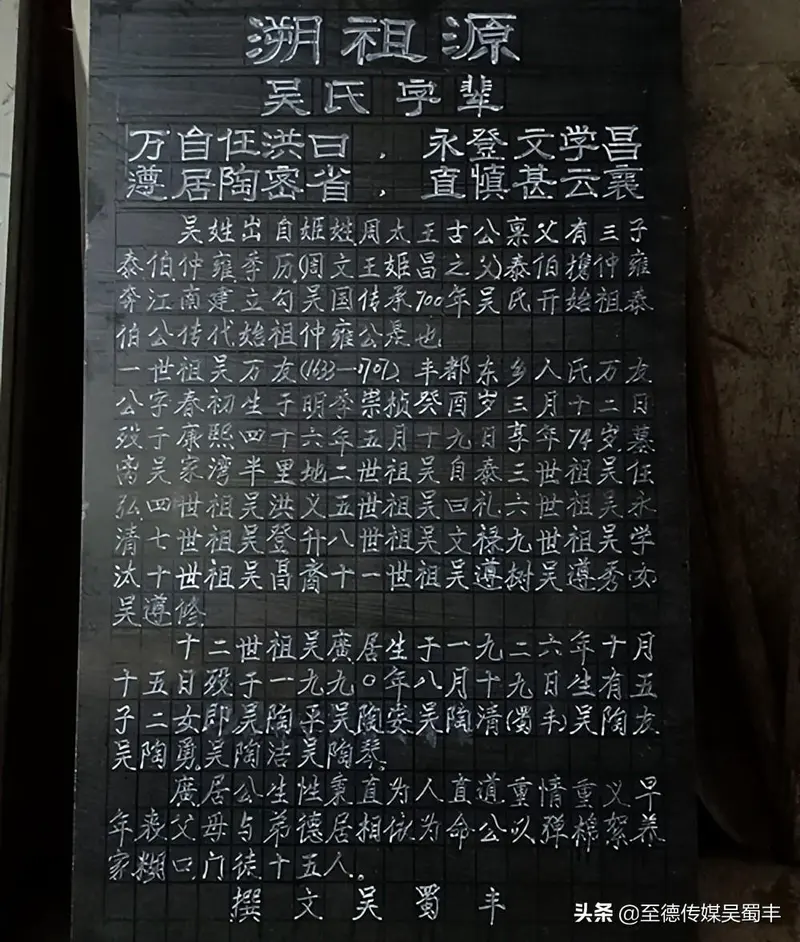 溯祖源
吴氏字辈
万自任洪曰，永登文学昌
遵居陶密省，直慎甚云襄
吴姓出自姬姓周太王古公禀父有三子
泰伯仲雍季历(周文王姬昌之父)泰伯携仲雍
奔江南建立勾吴国传承700年吴氏开始祖泰
伯公传代始祖仲雍公是也
一世祖吴万友(1633—1707)丰都东乡人氏万友
公字春初生于明季崇祯癸酉岁三月十二日
殁于康熙四十六年五月十九日享年74岁墓
离吴家湾半里地二世祖吴自泰三世祖吴任
弘四世祖吴洪义五世祖吴曰礼六世祖吴永
清七世祖吴登升八世祖吴文禄九世祖吴学
汰十世祖吴昌裔十一世祖吴遵树吴遵秀女
吴遵修
十二世祖吴廣居生于一九二六年十月
十五日殁于一九九〇年八月十九日生有五
子二女即吴陶平吴陶安吴陶清(蜀丰)吴陶友
吴陶勇吴陶洁吴陶琴
廣居公生性秉直为人直道重情重义早
年丧父母与弟德居相依为命公以弹棉絮养
家糊口门徒十五人。
撰文吴蜀丰
头条 @至德传媒吴蜀丰